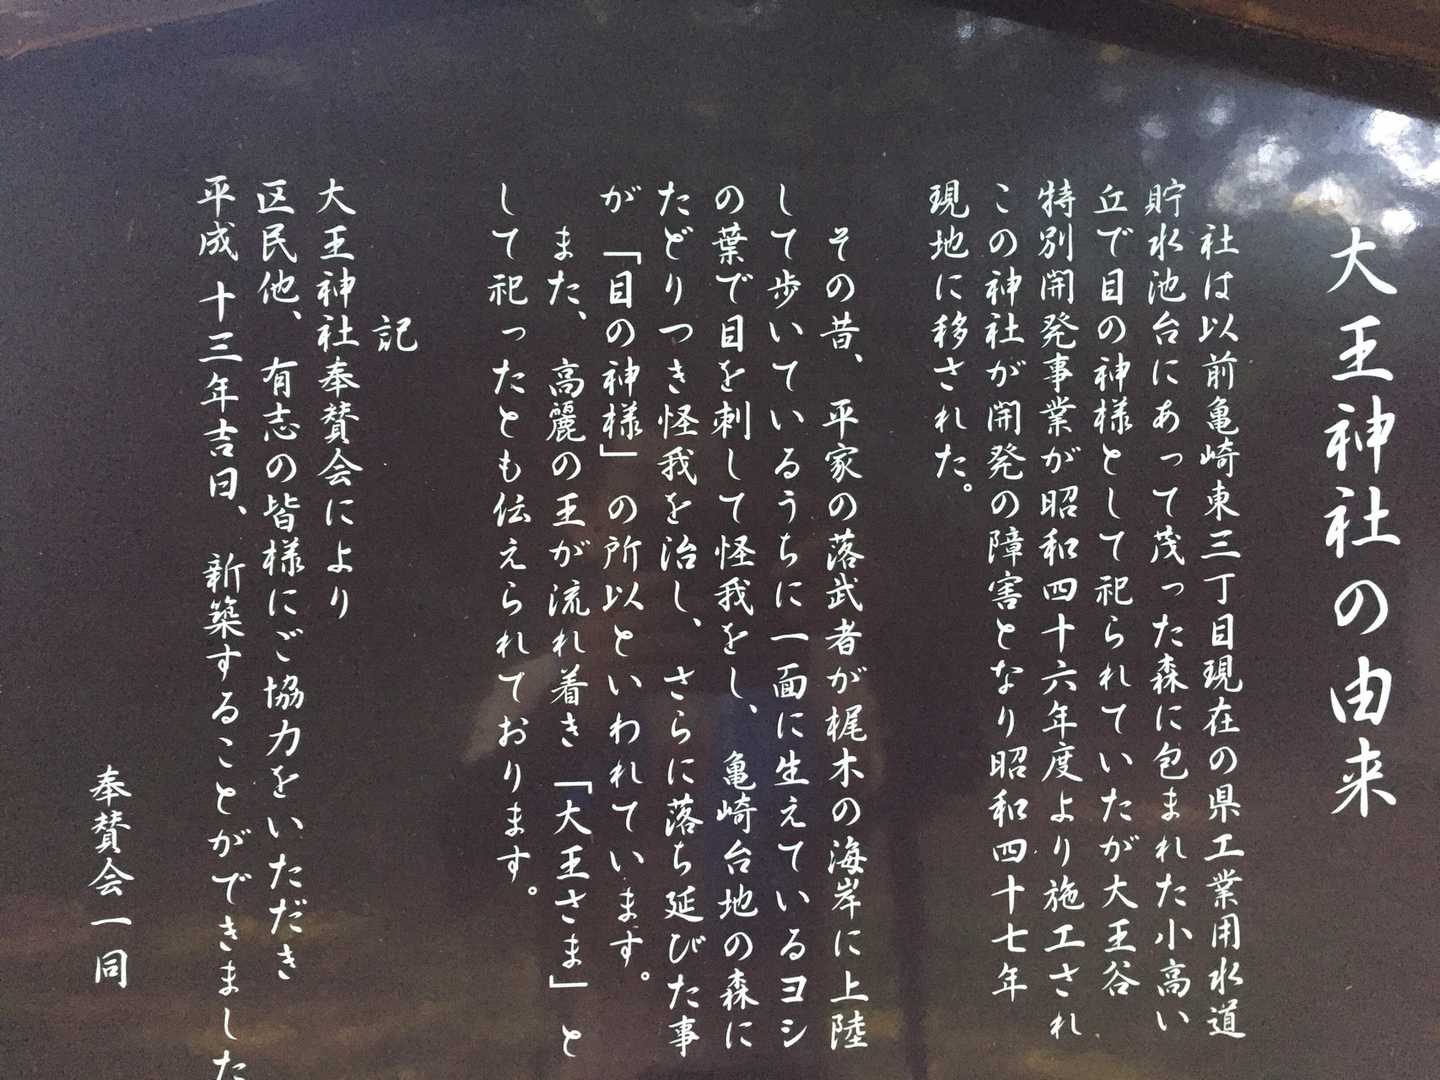 大王神社の由来
社は以前亀崎東三丁目現在の県工業用水道
貯水池台にあって茂った森に包まれた小高い
丘で目の神様として祀られていたが大王谷
特別開発事業が昭和四十六年度より施工され
この神社が開発の障害となり昭和四十七年
現地に移された。
その昔、平家の落武者が梶木の海岸に上陸
して歩いているうちに一面に生えているヨシ
の葉で目を刺して怪我をし、亀崎台地の森に
たどりつき怪我を治し、さらに落ち延びた事
が「目の神様」の所以といわれています。
また、高麗の王が流れ着き「大王さま」と
して祀ったとも伝えられております。
記
大王神社奉賛会により
区民他、有志の皆様にご協力をいただき
平成十三年吉日、新築することができました
奉賛会一同